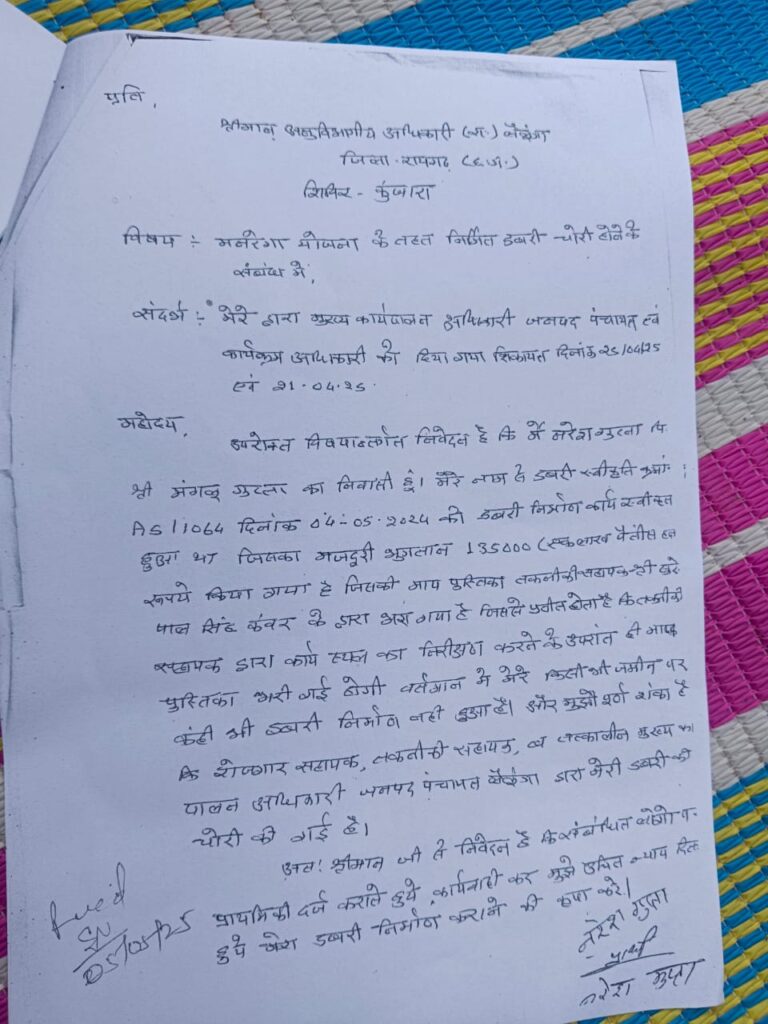 प्रति,
श्रीमान् अनुविभागीय अधिकारी (रा.) लैलूंगा
जिला-रायगढ़ (छ.ग.)
शिविर - कुंजारा
विषय :- मनरेगा योजना के तहत निर्मित डबरी चोरी होने के
संबंध में,
संदर्भ :- मेरे द्वारा मुख्य कार्यपालन अधिकारी जनपद पंचायत एवं
कार्यक्रम अधिकारी को दिया गया शिकायत दिनांक 25/04/25
एवं 21.04.25.
महोदय,
उपरोक्त विषयान्तर्गत निवेदन है कि मैं नरेश गुप्ता पि
श्री मंगलू गुप्ता का निवासी हूं। मेरे नाम से डबरी स्वीकृति क्रमां
AS/1064 दिनांक 04-05-2024 को डबरी निर्माण कार्य स्वीकृत
हुआ था जिसका मजदूरी भुगतान 135000 (एक लाख पैंतीस हजा
रूपये किया गया है जिसकी माप पुस्तिका तकनीकी सहायक श्री
पाल सिंह कंवर के द्वारा भरा गया है जिससे प्रतीत होता है कि तकनीकी
सहायक द्वारा कार्य स्थल का निरीक्षण करने के उपरांत ही माप
पुस्तिका भरी गई होगी वर्तमान में मेरे किसी भी जमीन पर
कंही भी डबरी निर्माण नही हुआ है। और मुझे पूर्ण शंका है
कि रोजगार सहायक, तकनीकी सहायक, व तत्कालीन मुख्य का
पालन अधिकारी जनपद पंचायत लैलूंगा द्वारा मेरी डबरी की
चोरी की गई है।
अतः श्रीमान जी से निवेदन है कि संबंधित लोगो प
प्राथमिकी दर्ज कराते हुये कार्यवाही कर मुझे उचित न्याय दिला
हुये मेरा डबरी निर्माण कराने की कृपा करे।
नरेश गुप्ता
प्रार्थी
नरेश गुप्ता
05/05/25